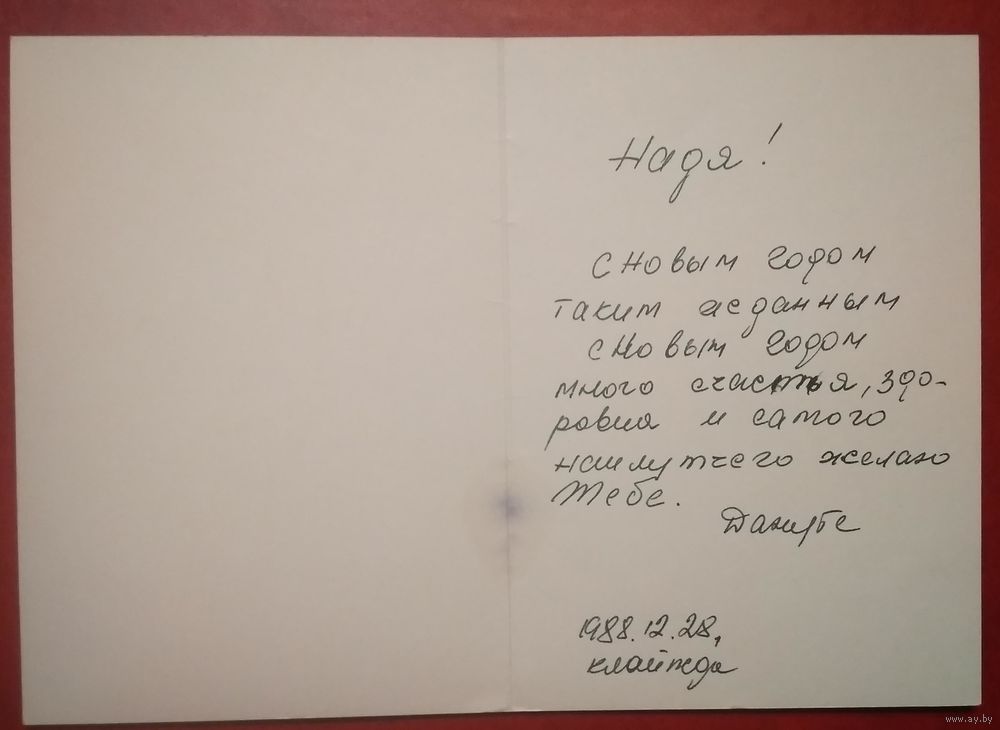 Надя!
С Новым годом
таким жеданным
С Новым годом
много счастья, здо-
ровия и самого
наилутчего желаю
Тебе.
Дануте
1988.12.28,
клайпеда
www.ay.by